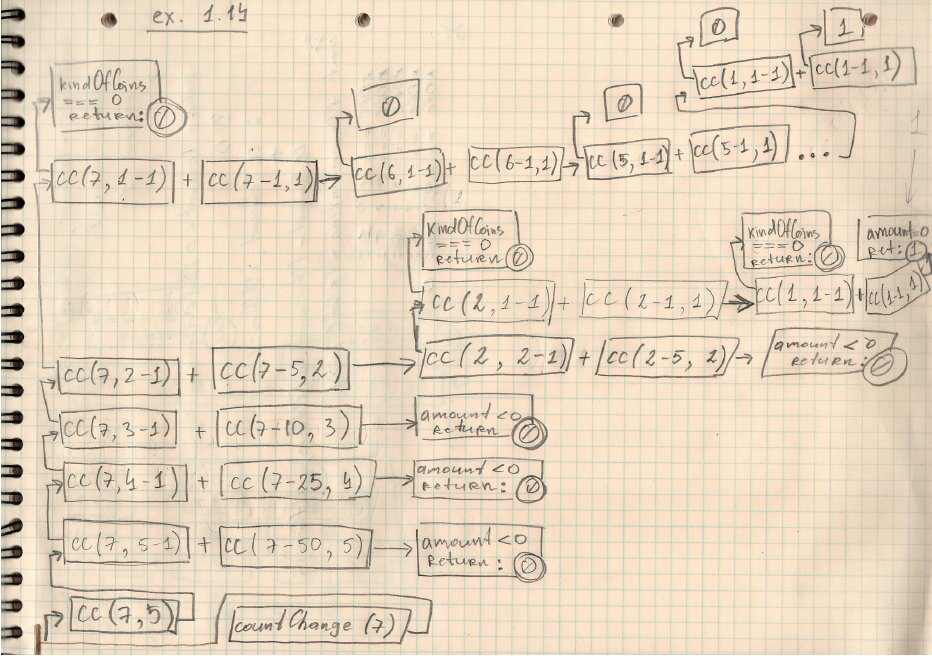 ex. 1.14
0
1
kindOfCoins
=== 0
return: 0
0
0
cc(1, 1-1) + cc(1-1, 1)
cc(7, 1-1) + cc(7-1, 1)
cc(6, 1-1) + cc(6-1, 1)
cc(5, 1-1) + cc(5-1, 1) ...
1
kindOfCoins
=== 0
return 0
kindOfCoins
=== 0
return: 0
amount=0
ret: 1
cc(2, 1-1) + cc(2-1, 1)
cc(1, 1-1) + cc(1-1, 1)
cc(7, 2-1) + cc(7-5, 2)
cc(2, 2-1) + cc(2-5, 2)
amount<0
return: 0
cc(7, 3-1) + cc(7-10, 3)
amount<0
return 0
cc(7, 4-1) + cc(7-25, 4)
amount<0
return: 0
cc(7, 5-1) + cc(7-50, 5)
amount<0
return: 0
cc(7, 5)
countChange (7)